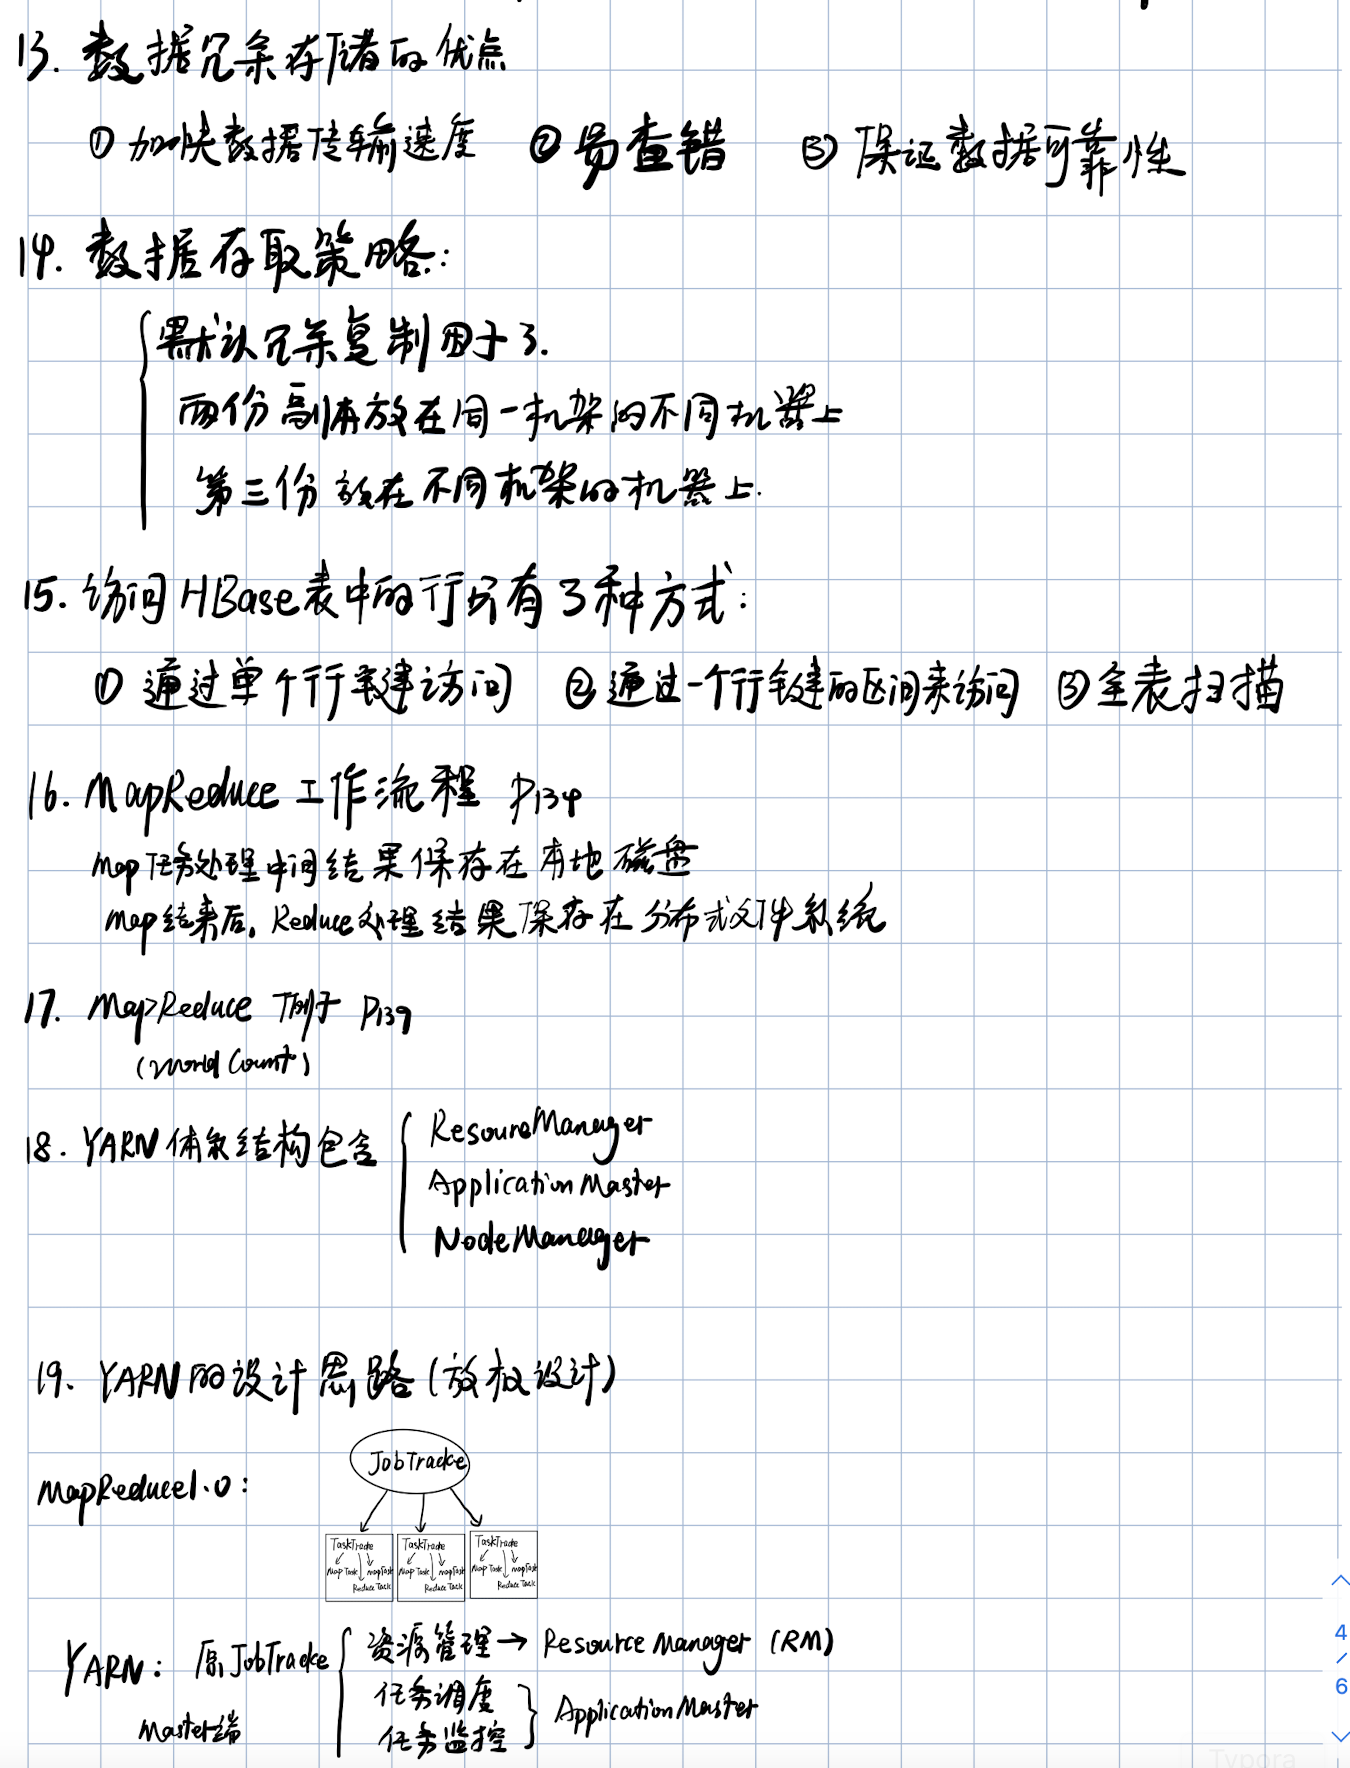 13. 数据冗余存储的优点
① 加快数据传输速度 ② 易查错 ③ 保证数据可靠性
14. 数据存取策略:
默认冗余复制因子3.
两份副本放在同一机架的不同机器上
第三份放在不同机架的机器上.
15. 访问HBase表中的行只有3种方式:
① 通过单个行键访问 ② 通过一个行键的区间来访问 ③ 全表扫描
16. MapReduce 工作流程 P134
Map任务处理中间结果保存在本地磁盘
Map结束后, Reduce处理结果保存在分布式文件系统
17. MapReduce 例子 P139
(World Count)
18. YARN体系结构包含
ResoureManager
ApplicationMaster
NodeManager
19. YARN的设计思路(放权设计)
JobTracke
MapReduce1.0:
TaskTracke TaskTracke TaskTracke
Map Task mapTask Map Task mapTask Map Task mapTask
Reduce Task Reduce Task Reduce Task
YARN: 原JobTracke 资源管理→ Resource Manager (RM)
任务调度
ApplicationMaster
Master端 任务监控
4
/
6
Typora